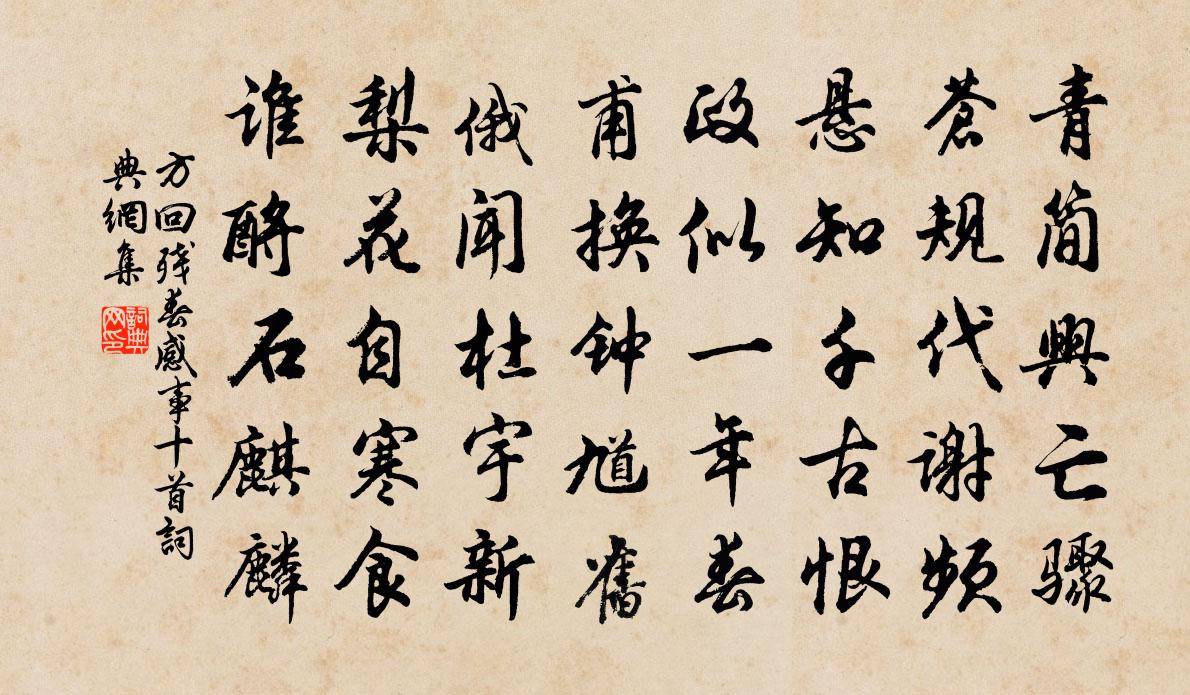 青简興亡骤
苍規代谢频
悬知千古恨
政似一年春
甫换钟馗舊
俄闻杜宇新
梨花自寒食
谁酹石麒麟
方回残春感事十首詞
典網集
詞典
网印